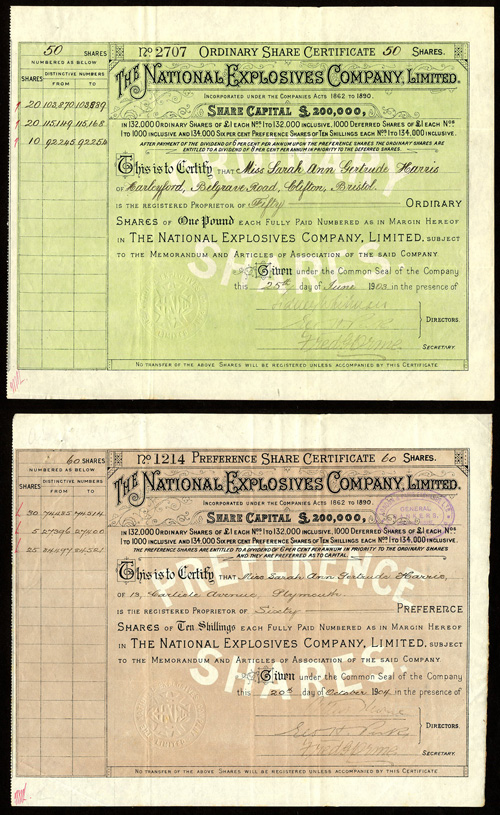 50 SHARES
NUMBERED AS BELOW
SHARES DISTINCTIVE NUMBERS
FROM TO
20 103,870 103,889
20 115,149 115,168
10 92,245 92,254
No 2707 ORDINARY SHARE CERTIFICATE 50 SHARES.
THE NATIONAL EXPLOSIVES COMPANY, LIMITED.
INCORPORATED UNDER THE COMPANIES ACTS 1862 TO 1890.
SHARE CAPITAL £200,000,
IN 132,000 ORDINARY SHARES OF £1 EACH Nos 1 TO 132,000 INCLUSIVE, 1000 DEFERRED SHARES OF £1 EACH Nos
1 TO 1000 INCLUSIVE AND 134,000 SIX PER CENT PREFERENCE SHARES OF TEN SHILLINGS EACH Nos 1 TO 134,000 INCLUSIVE.
AFTER PAYMENT OF THE DIVIDEND OF 6 PER CENT PER ANNUM UPON THE PREFERENCE SHARES THE ORDINARY SHARES ARE
ENTITLED TO A DIVIDEND OF 8 PER CENT PER ANNUM IN PRIORITY TO THE DEFERRED SHARES.
ORDINARY
SHARES.
This is to Certify THAT Miss Sarah Ann Gertrude Harris
of Harleyford, Belgrave Road, Clifton, Bristol.
IS THE REGISTERED PROPRIETOR OF Fifty ORDINARY
SHARES OF One Pound EACH FULLY PAID NUMBERED AS IN MARGIN HEREOF
IN THE NATIONAL EXPLOSIVES COMPANY, LIMITED, SUBJECT
TO THE MEMORANDUM AND ARTICLES OF ASSOCIATION OF THE SAID COMPANY
Given under the Common Seal of the Company
this 25th day of June 1903 in the presence of
DIRECTORS.
Fred G Orme
SECRETARY.
NO TRANSFER OF THE ABOVE SHARES WILL BE REGISTERED UNLESS ACCOMPANIED BY THIS CERTIFICATE
60 SHARES
NUMBERED AS BELOW
SHARES DISTINCTIVE NUMBERS
FROM TO
30 74,485 74,514
5 27,396 27,400
25 24,497 24,521
No 1214 PREFERENCE SHARE CERTIFICATE 60 SHARES.
THE NATIONAL EXPLOSIVES COMPANY, LIMITED.
INCORPORATED UNDER THE COMPANIES ACTS 1862 TO 1890.
GENERAL
SHARE CAPITAL £200,000,
IN 132,000 ORDINARY SHARES OF £1 EACH Nos 1 TO 132,000 INCLUSIVE, 1000 DEFERRED SHARES OF £1 EACH Nos
1 TO 1000 INCLUSIVE AND 134,000 SIX PER CENT PREFERENCE SHARES OF TEN SHILLINGS EACH Nos 1 TO 134,000 INCLUSIVE.
THE PREFERENCE SHARES ARE ENTITLED TO A DIVIDEND OF 6 PER CENT PER ANNUM IN PRIORITY TO THE ORDINARY SHARES
AND THEY ARE PREFERRED AS TO CAPITAL.
PREFERENCE
SHARES.
This is to Certify THAT Miss Sarah Ann Gertrude Harris,
OF 13, Carlisle Avenue, Plymouth.
IS THE REGISTERED PROPRIETOR OF Sixty PREFERENCE
SHARES OF Ten Shillings EACH FULLY PAID NUMBERED AS IN MARGIN HEREOF
IN THE NATIONAL EXPLOSIVES COMPANY, LIMITED, SUBJECT
TO THE MEMORANDUM AND ARTICLES OF ASSOCIATION OF THE SAID COMPANY
Given under the Common Seal of the Company
this 20th day of October 1904 in the presence of
DIRECTORS.
Fred G Orme
SECRETARY.
NO TRANSFER OF THE ABOVE SHARES WILL BE REGISTERED UNLESS ACCOMPANIED BY THIS CERTIFICATE